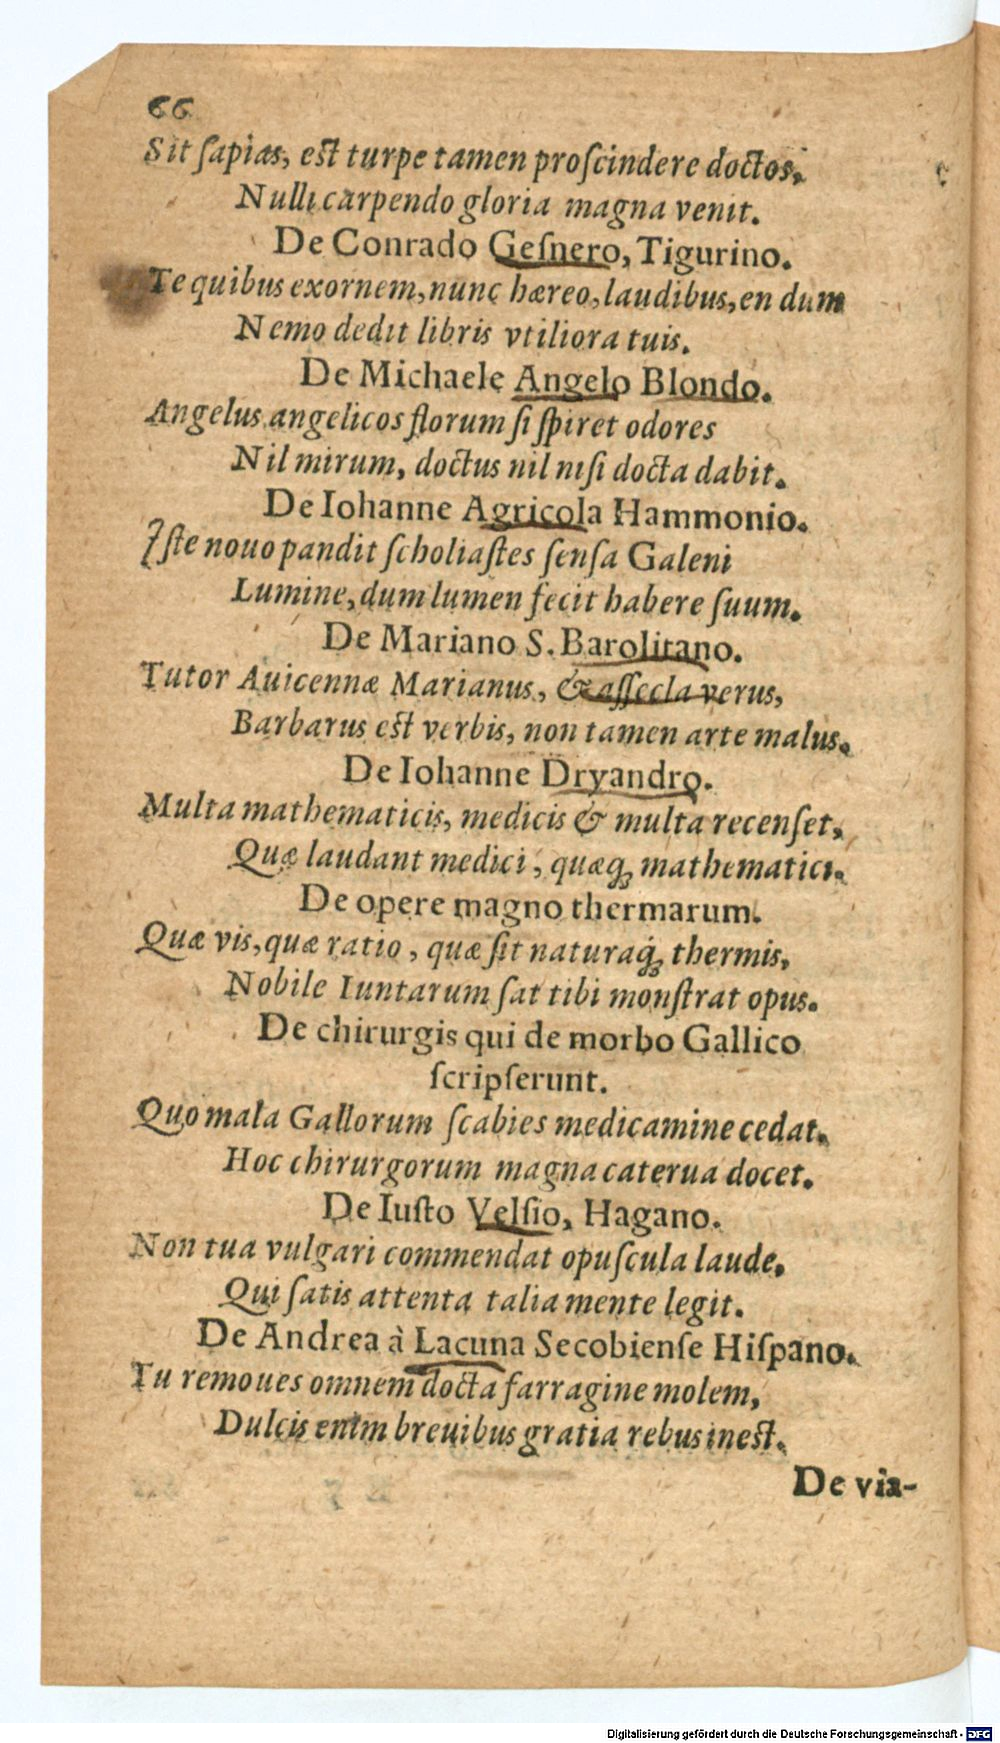 66
Sit ſapias, eſt turpe tamen proſcindere doctos,
Nulli carpendo gloria magna venit.
De Conrado Geſnero, Tigurino.
Te quibus exornem, nunc hæreo, laudibus, en dum
Nemo dedit libris vtiliora tuis.
De Michaele Angelo Blondo.
Angelus angelicos florum ſi ſpiret odores
Nil mirum, doctus nil niſi docta dabit.
De Iohanne Agricola Hammonio.
Iſte nouo pandit ſcholiaſtes ſenſa Galeni
Lumine, dum lumen fecit habere ſuum.
De Mariano S. Barolitano.
Tutor Auicennæ Marianus, & aſſecla verus,
Barbarus eſt verbis, non tamen arte malus.
De Iohanne Dryandro.
Multa mathematicis, medicis & multa recenſet,
Quæ laudant medici, quæq́; mathematici.
De opere magno thermarum.
Quæ vis, quæ ratio, quæ ſit naturaq́; thermis,
Nobile Iuntarum ſat tibi monſtrat opus.
De chirurgis qui de morbo Gallico
ſcripſerunt.
Quo mala Gallorum ſcabies medicamine cedat,
Hoc chirurgorum magna caterua docet.
De Iuſto Velſio, Hagano.
Non tua vulgari commendat opuſcula laude,
Qui ſatis attenta talia mente legit.
De Andrea à Lacuna Secobienſe Hiſpano.
Tu remoues omnem docta farragine molem,
Dulcis enim breuibus gratia rebus ineſt.
De via-
Digitalisierung gefördert durch die Deutsche Forschungsgemeinschaft - DFG